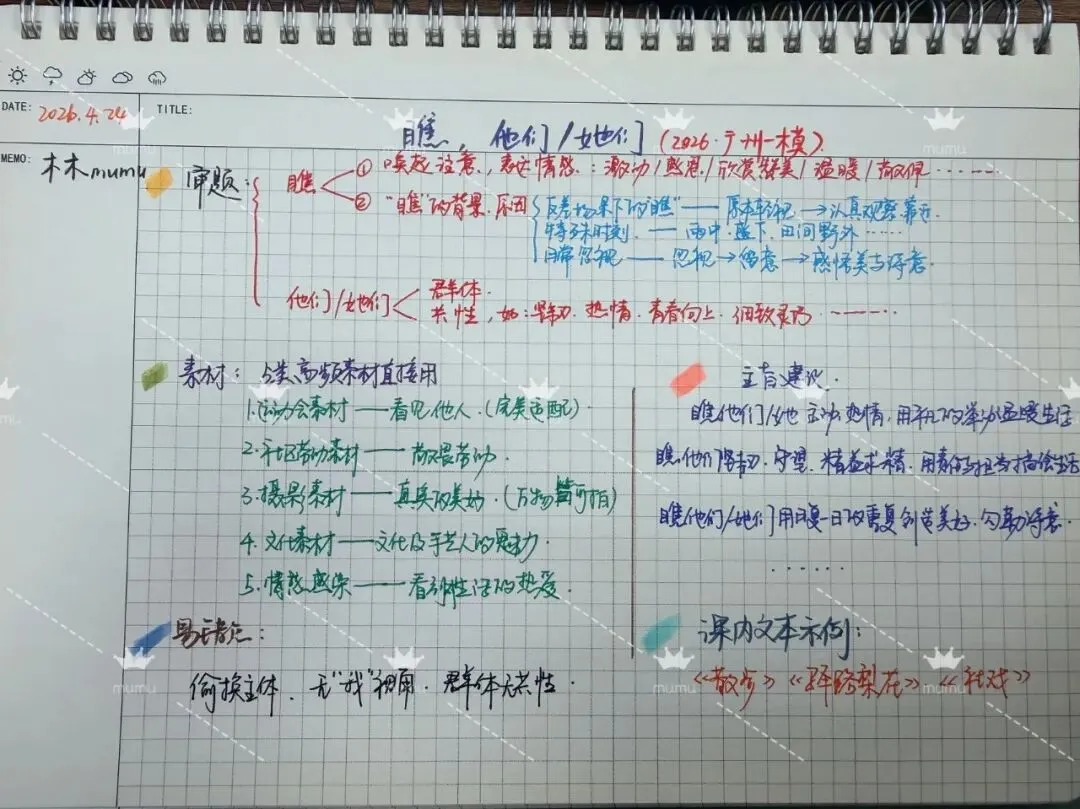 DATE: 2026.4.24
TITLE:
瞧，他们/她们（2026·广州一模）
MEMO: 木木mumu
审题
瞧
① 唤起注意，表达情感：激动/感恩/欣赏赞美/温暖/敬佩……
② "瞧"的背景、原因
反差场景下的"瞧"——原本轻视→认真观察、靠近
特殊时刻——雨中、盛下、田间野外……
日常忽视——忽视→留意→感悟美与诗意.
他们/她们
群体.
共性，如：坚韧.热情.青春向上.细致灵巧……
素材：5类高频素材直接用
1.运动会素材——看见他人.(完美适配).
2.社区劳动素材——敬畏劳动.
3.摄影素材——真实的美好.(万物皆可拍)
4.文化素材——文化及手艺人的魅力.
5.情感感染——看到对生活的热爱.
主旨建议.
瞧他们/她主动.热情.用平凡的举动温暖生活
瞧他们坚韧.守望.精益求精.用责任与担当描绘生活
瞧他们/她们用日复一日的重复创造美好.勾勒诗意.
......
易错点：
偷换主体.无"我"视角.群体无共性.
课内文本示例：
《散步》《驿路梨花》《社戏》
mumu